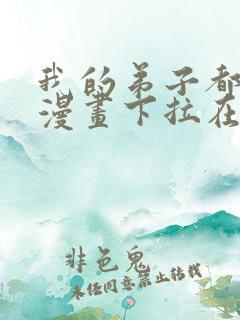 我的弟子都
漫畫下拉在
非色鬼
未经同意禁止转载